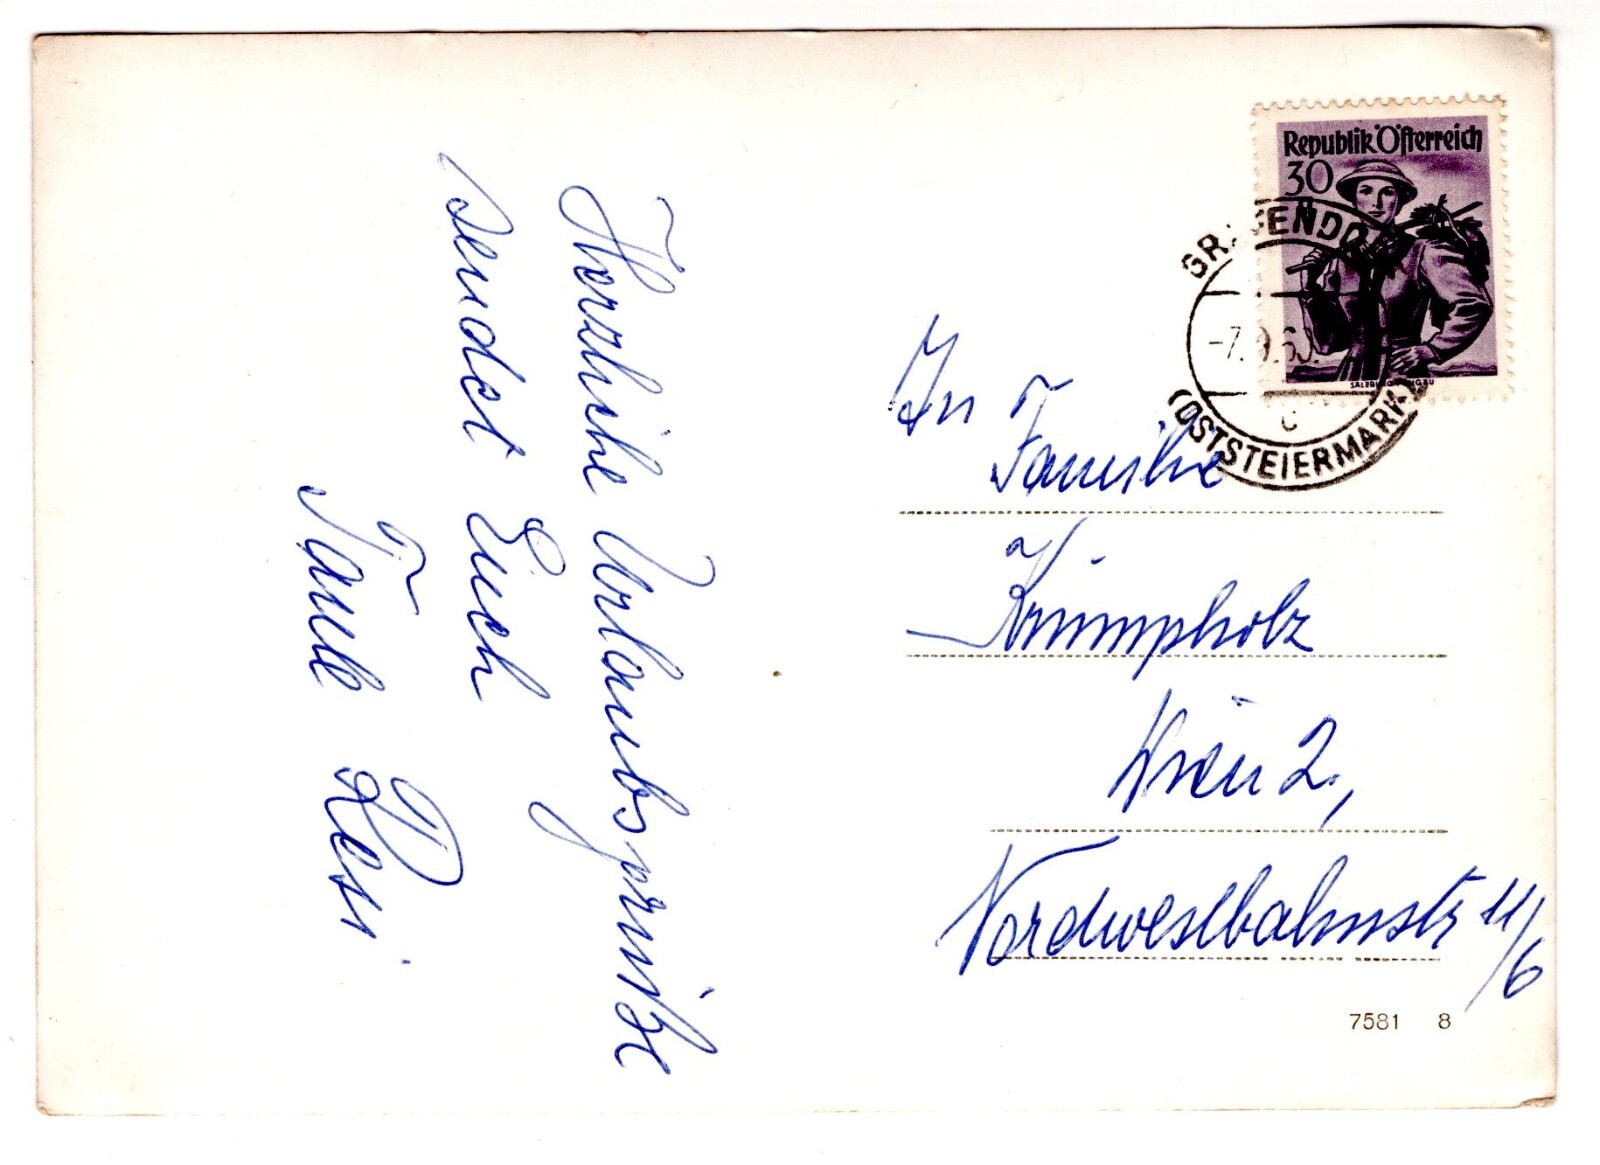 Herzliche Urlaubsgrüße
sendet Euch
Tante Resi
Republik Österreich
30
SALZBURG
GRAFENDORF
-7.9.6
c
(OSTSTEIERMARK)
An
Familie
Krumpholz
Wien 2,
Nordwestbahnstr 11/6
7581 8